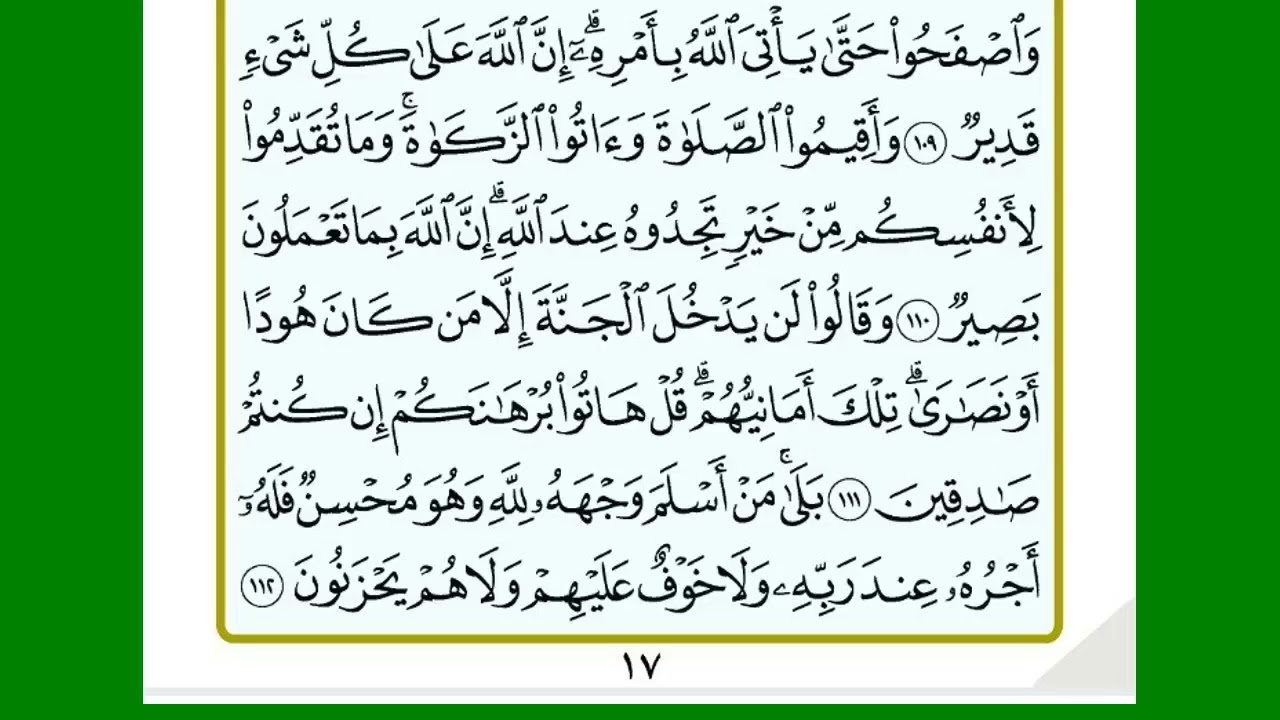 وَٱصۡفَحُواْ حَتَّىٰ يَأۡتِيَ ٱللَّهُ بِأَمۡرِهِۦٓۗ إِنَّ ٱللَّهَ عَلَىٰ كُلِّ شَيۡءٖ
قَدِيرٞ ١٠٩ وَأَقِيمُواْ ٱلصَّلَوٰةَ وَءَاتُواْ ٱلزَّكَوٰةَۚ وَمَا تُقَدِّمُواْ
لِأَنفُسِكُم مِّنۡ خَيۡرٖ تَجِدُوهُ عِندَ ٱللَّهِۗ إِنَّ ٱللَّهَ بِمَا تَعۡمَلُونَ
بَصِيرٞ ١١٠ وَقَالُواْ لَن يَدۡخُلَ ٱلۡجَنَّةَ إِلَّا مَن كَانَ هُودًا
أَوۡ نَصَٰرَىٰۗ تِلۡكَ أَمَانِيُّهُمۡۗ قُلۡ هَاتُواْ بُرۡهَٰنَكُمۡ إِن كُنتُمۡ
صَٰدِقِينَ ١١١ بَلَىٰۚ مَنۡ أَسۡلَمَ وَجۡهَهُۥ لِلَّهِ وَهُوَ مُحۡسِنٞ فَلَهُۥٓ
أَجۡرُهُۥ عِندَ رَبِّهِۦ وَلَا خَوۡفٌ عَلَيۡهِمۡ وَلَا هُمۡ يَحۡزَنُونَ ١١٢
١٧